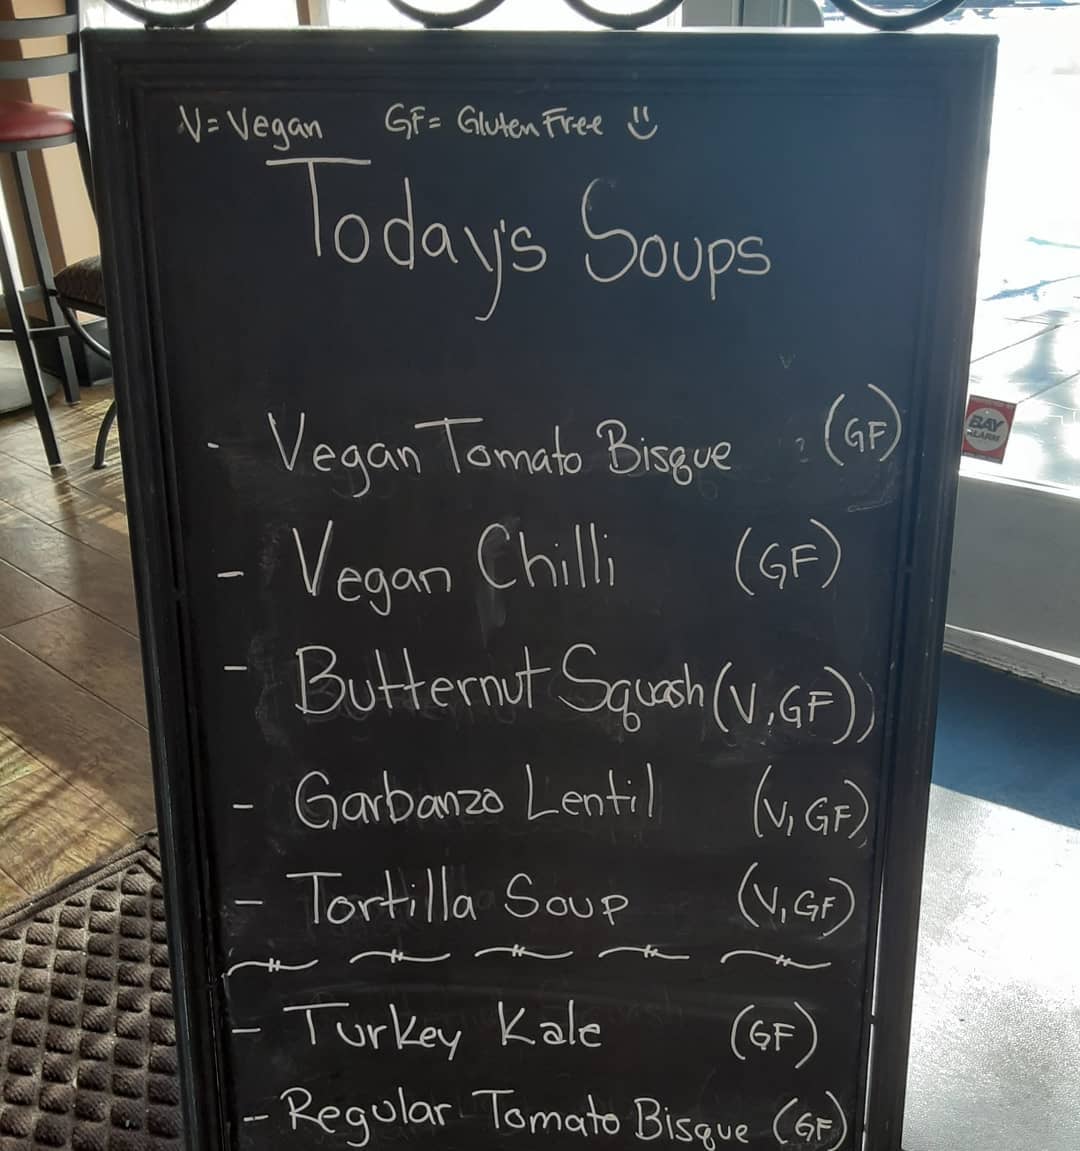 V=Vegan GF= Gluten Free
Today's Soups
- Vegan Tomato Bisque (GF)
- Vegan Chilli (GF)
- Butternut Squash (V, GF))
- Garbanzo Lentil (V, GF)
- Tortilla Soup (V, GF)
- Turkey Kale (GF)
- Regular Tomato Bisque (GF)
BAY
ALARM